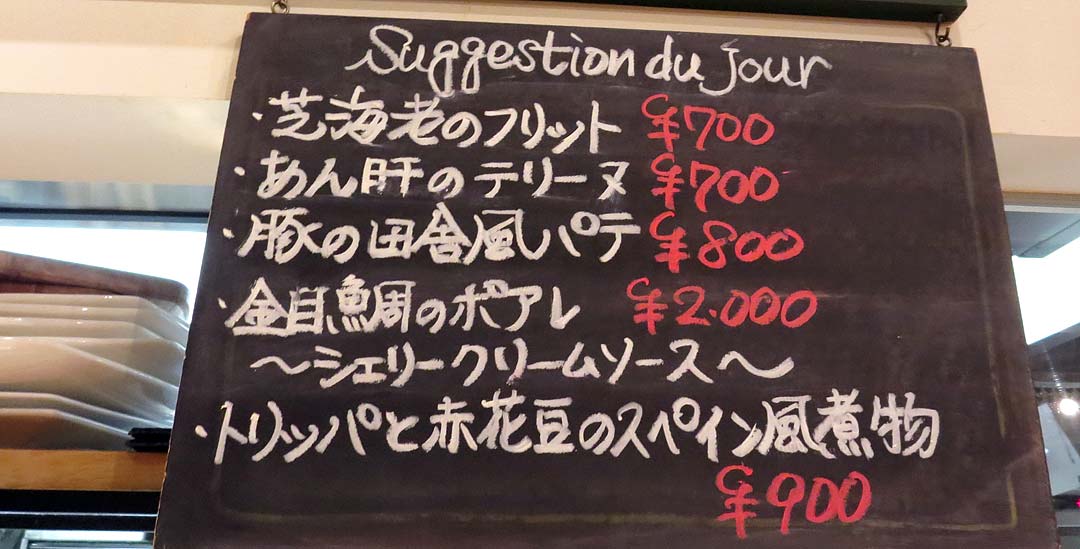 Suggestion du jour
・芝海老のフリット ¥700
・あん肝のテリーヌ ¥700
・豚の田舎風パテ ¥800
・金目鯛のポアレ ¥2.000
〜シェリークリームソース〜
・トリッパと赤花豆のスペイン風煮物
¥900